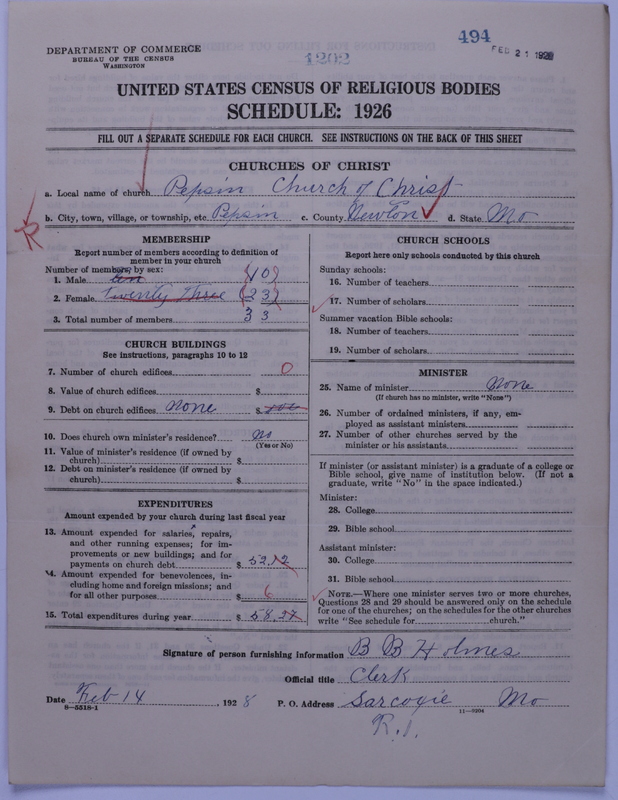 494
FEB 21 1928
DEPARTMENT OF COMMERCE
BUREAU OF THE CENSUS
WASHINGTON
1202
UNITED STATES CENSUS OF RELIGIOUS BODIES
SCHEDULE: 1926
FILL OUT A SEPARATE SCHEDULE FOR EACH CHURCH. SEE INSTRUCTIONS ON THE BACK OF THIS SHEET
CHURCHES OF CHRIST
a. Local name of church Pepsin Church of Christ
b. City, town, village, or township, etc. Pepsin c. County Newton d. State Mo
R
MEMBERSHIP
Report number of members according to definition of
member in your church
Number of members, by sex:
1. Male ten (10)
2. Female twenty three (23)
3. Total number of members 33
CHURCH BUILDINGS
See instructions, paragraphs 10 to 12
7. Number of church edifices 0
8. Value of church edifices $
9. Debt on church edifices None $
10. Does church own minister's residence? No
(Yes or No)
11. Value of minister's residence (if owned by
church) $
12. Debt on minister's residence (if owned by
church) $
EXPENDITURES
Amount expended by your church during last fiscal year
13. Amount expended for salaries, repairs,
and other running expenses; for im-
provements or new buildings; and for
payments on church debt $ 52.12
14. Amount expended for benevolences, in-
cluding home and foreign missions; and
for all other purposes $ 6
15. Total expenditures during year $ 58.37
CHURCH SCHOOLS
Report here only schools conducted by this church
Sunday schools:
16. Number of teachers
17. Number of scholars
Summer vacation Bible schools:
18. Number of teachers
19. Number of scholars
MINISTER
25. Name of minister None
(If church has no minister, write "None")
26. Number of ordained ministers, if any, em-
ployed as assistant ministers
27. Number of other churches served by the
minister or his assistants
If minister (or assistant minister) is a graduate of a college or
Bible school, give name of institution below. (If not a
graduate, write "No" in the space indicated.)
Minister:
28. College
29. Bible school
Assistant minister:
30. College
31. Bible school
NOTE.—Where one minister serves two or more churches,
Questions 28 and 29 should be answered only on the schedule
for one of the churches; on the schedules for the other churches
write "See schedule for church."
Signature of person furnishing information B B Holmes
Official title Clerk
Date Feb 14, 1928 P. O. Address Sarcogie Mo
8—5518-1 11—9294
R.1.